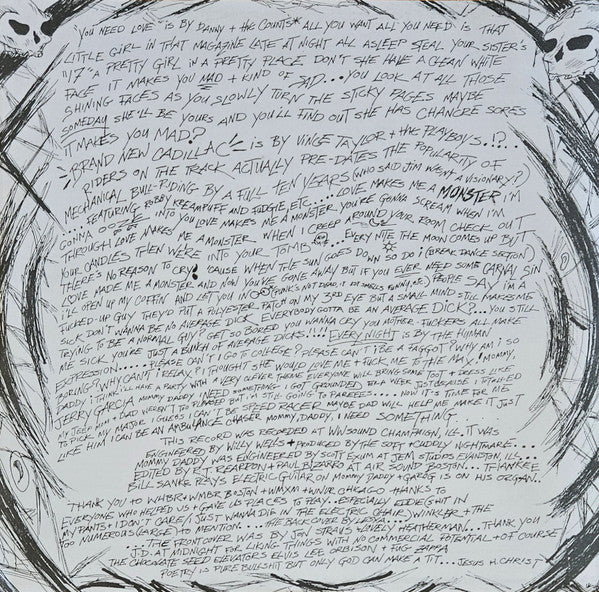 "YOU NEED LOVE" IS BY DANNY + THE COUNTS* ALL YOU WANT ALL YOU NEED IS THAT
LITTLE GIRL IN THAT MAGAZINE LATE AT NIGHT ALL ASLEEP STEAL YOUR SISTER'S
"17" A PRETTY GIRL IN A PRETTY PLACE DON'T SHE HAVE A CLEAN WHITE
FACE IT MAKES YOU MAD + KIND OF SAD... YOU LOOK AT ALL THOSE
SHINING FACES AS YOU SLOWLY TURN THE STICKY PAGES MAYBE
SOMEDAY SHE'LL BE YOURS AND YOU'LL FIND OUT SHE HAS CHANCRE SORES
IT MAKES YOU MAD?
"BRAND NEW CADILLAC" IS BY VINCE TAYLOR + THE PLAYBOYS..!?..
RIDERS ON THE TRACK ACTUALLY PRE-DATES THE POPULARITY OF
MECHANICAL BULL-RIDING BY A FULL TEN YEARS (WHO SAID JIM WASN'T A VISIONARY?)
....FEATURING ROBBY KREAMPUFF AND FUDGIE, ETC.... LOVE MAKES ME A MONSTER I'M
GONNA OOZE INTO YOU LOVE MAKES ME A MONSTER YOU'RE GONNA SCREAM WHEN I'M
THROUGH LOVE MAKES ME A MONSTER WHEN I CREEP AROUND YOUR ROOM CHECK OUT
YOUR CANDLES THEN WE'RE INTO YOUR TOMB... EVERY NITE THE MOON COMES UP BUT
THERE'S NO REASON TO CRY 'CAUSE WHEN THE SUN GOES DOWN SO DO I (BREAK DANCE SECTION)
LOVE MADE ME A MONSTER AND NOW YOU'VE GONE AWAY BUT IF YOU EVER NEED SOME CARNAL SIN
I'LL OPEN UP MY COFFIN AND LET YOU IN (PUNK'S NOT DEAD, IT JUST SMELLS FUNNY, ME) PEOPLE SAY I'M A
FUCKED-UP GUY THEY'D PUT A POLYESTER PATCH ON MY 3RD EYE BUT A SMALL MIND STILL MAKES ME
SICK DON'T WANNA BE NO AVERAGE DICK EVERYBODY GOTTA BE AN AVERAGE DICK?... YOU STILL
TRYING TO BE A NORMAL GUY? GET SO BORED YOU WANNA CRY YOU MOTHER-FUCKERS ALL MAKE
ME SICK YOU'RE JUST A BUNCH OF AVERAGE DICKS!!!! EVERY NIGHT IS BY THE HUMAN
EXPRESSION..... PLEASE CAN'T I GO TO COLLEGE? PLEASE CAN'T I BE A FAGGOT? WHY AM I SO
BORING? WHY CAN'T I RELAX? I THOUGHT SHE WOULD LOVE ME + FUCK ME TO THE MAX! MOMMY,
DADDY I THINK I'LL HAVE A PARTY WITH A VERY CLEVER THEME EVERYONE WILL BRING SOME TOOT + DRESS LIKE
JERRY GARCIA MOMMY DADDY I NEED SOMETHING I GOT GROUNDED FOR A WEEK JUST BECAUSE I TOTALED
MY JEEP MOM + DAD WEREN'T TOO BUMMED BUT I'M STILL GOING TO PAREEEE..... NOW IT'S TIME FOR ME
TO PICK MY MAJOR I GUESS I CAN'T BE SPEED RACER MAYBE DAD WILL HELP ME MAKE IT JUST
LIKE HIM I CAN BE AN AMBULANCE CHASER MOMMY, DADDY, I NEED SOMETHING
THIS RECORD WAS RECORDED AT WWSOUND CHAMPAIGN, ILL. IT WAS
ENGINEERED BY WILLY WELLS + PRODUCED BY THE SOFT + CUDDLY NIGHTMARE....
MOMMY DADDY WAS ENGINEERED BY SCOTT EXUM AT JEM STUDIOS EVANSTON, ILL...
EDITED BY RT REARDON + PAUL BIZARRO AT AIR SOUND BOSTON...
BILL SANKE PLAYS ELECTRIC GUITAR ON MOMMY DADDY + GAROG IS ON HIS ORGAN..
THANK YOU TO WHBR + WMBR BOSTON + WMXM + WNUR CHICAGO THANKS TO
EVERYONE WHO HELPED US + GAVE US PLACES TO PLAY... ESPECIALLY
MY PANTS + I DON'T CARE/I JUST WANNA DIE IN THE ELECTRIC CHAIR) WINKLER + THE
GO NUMEROUS (LARGE) TO MENTION.... THE BACK COVER BY LEDYA.....
THE FRONT COVER WAS BY JON STRAUS WINELY HEATHERMAN... THANK YOU
J.D. AT MIDNIGHT FOR LIKING THINGS WITH NO COMMERCIAL POTENTIAL + OF COURSE
THE CHOCOLATE SEED ELEVATORS ELVIS LEE ORBISON +
POETRY IS PURE BULLSHIT BUT ONLY GOD CAN MAKE A TIT.... JESUS H. CHRIST